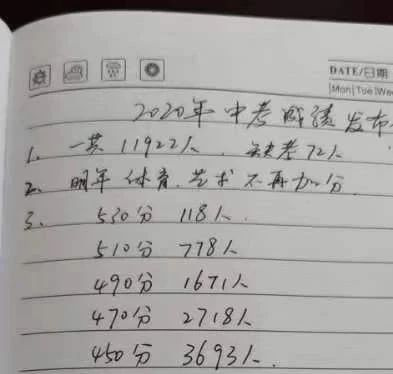 DATE/日期
Mon|Tue|We
2020年中考成绩发布
1. 一共11922人，缺考72人
2. 明年体育、艺术不再加分
3. 530分 118人.
510分 778人
490分 1671人
470分 2718人
450分 3693人.